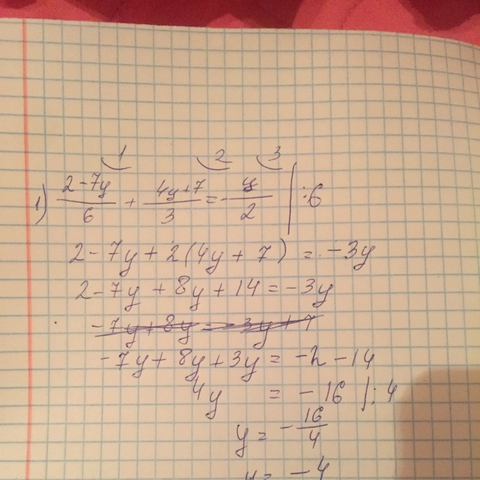 1 2 3
1) 2-7y/6 + 4y+7/3 = -y/2 | :6
2-7y+2(4y+7) = -3y
2-7y+8y+14=-3y
-7y+8y=-3y+
-7y+8y+3y=-2-14
4y = -16 |:4
y=-16/4
y=-4